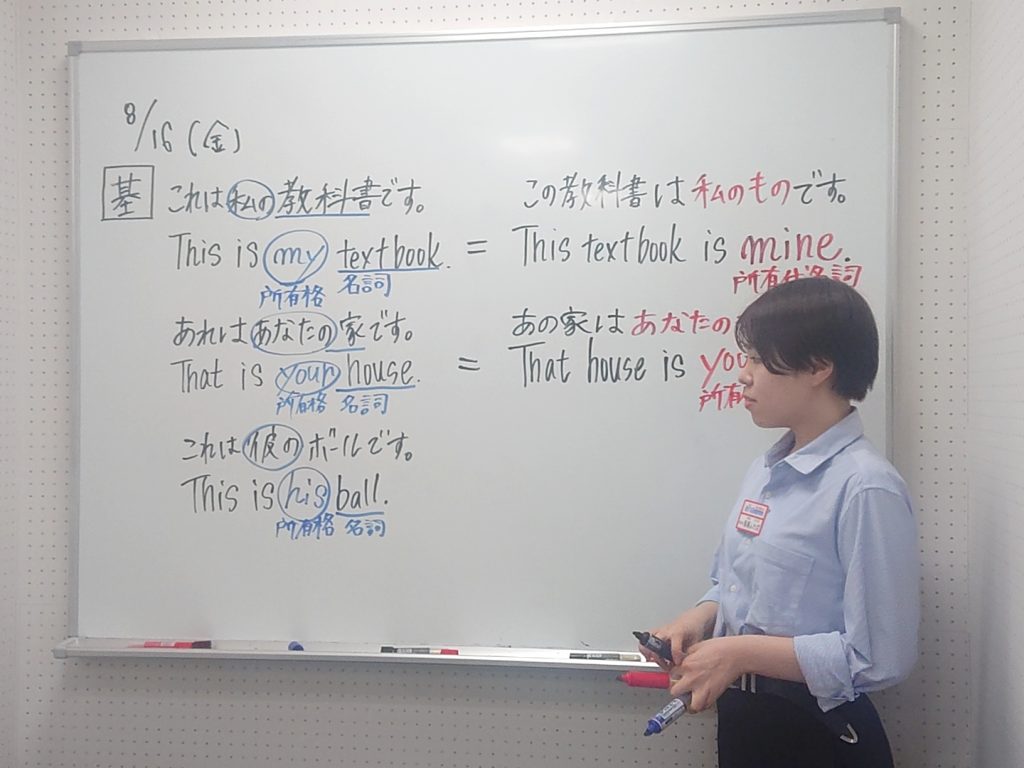 8/16 (金)
基 これは私の教科書です。
This is my textbook. =
所有格 名詞
あれはあなたの家です。
That is your house. =
所有格 名詞
これは彼のボールです。
This is his ball.
所有格 名詞
この教科書は私のものです。
This textbook is mine.
所有代名詞
あの家はあなたの
That house is